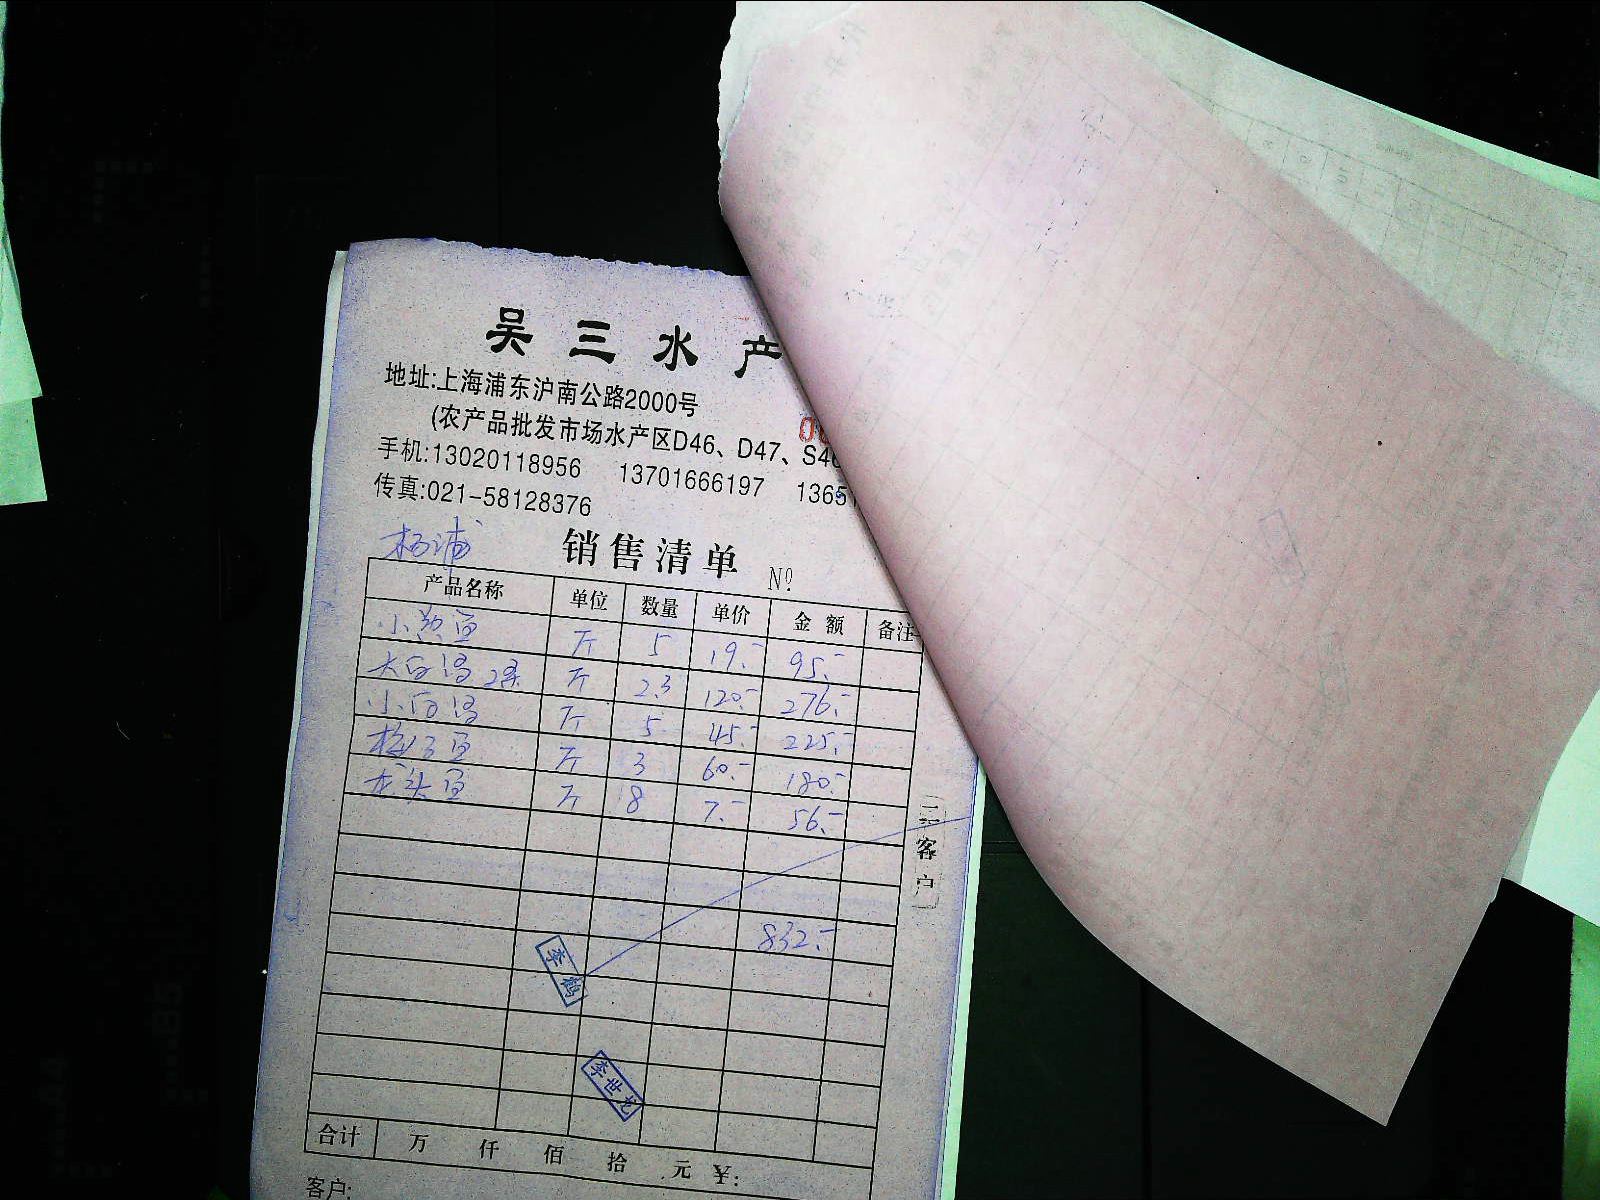 吴三水产
地址:上海浦东沪南公路2000号
(农产品批发市场水产区D46、D47、S46
手机:13020118956 13701666197 1365
传真:021-58128376
杨浦
销售清单 №
产品名称 单位 数量 单价 金额 备注
小黄鱼 斤 5 19.- 95.-
大白鲳 2条 斤 2.3 120.- 276.-
小白鲳 斤 5 45.- 225.-
梅子鱼 斤 3 60.- 180.-
龙头鱼 斤 8 7.- 56.-
二客户
832.-
李鹤
李世龙
合计 万 仟 佰 拾 元 ¥:
客户: